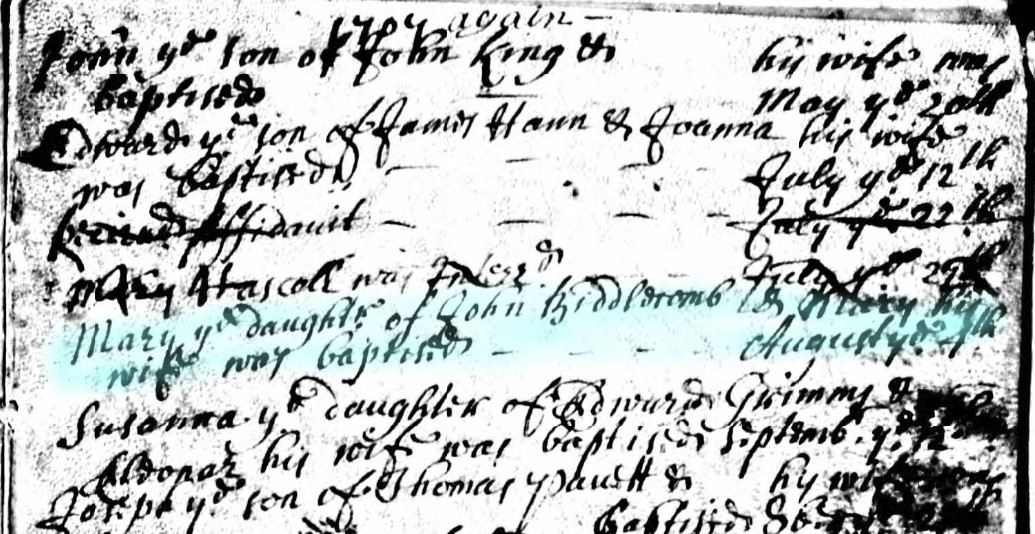 1707 again -
John ye son of John King &
his wife was
baptised May ye 20th
Edward ye son of James Hann & Joanna his wife
was baptised July ye 12th
affidavit July ye 22th
Mary Hascoll was Interrd July ye 29th
Mary ye daughtr of John Biddlecomb & Mary his
wife was baptised August ye 9th
Susanna ye daughter of Edward Grimms &
his wife was baptised Septemb. ye 12
Joseph ye son of Thomas & his wife was
baptised